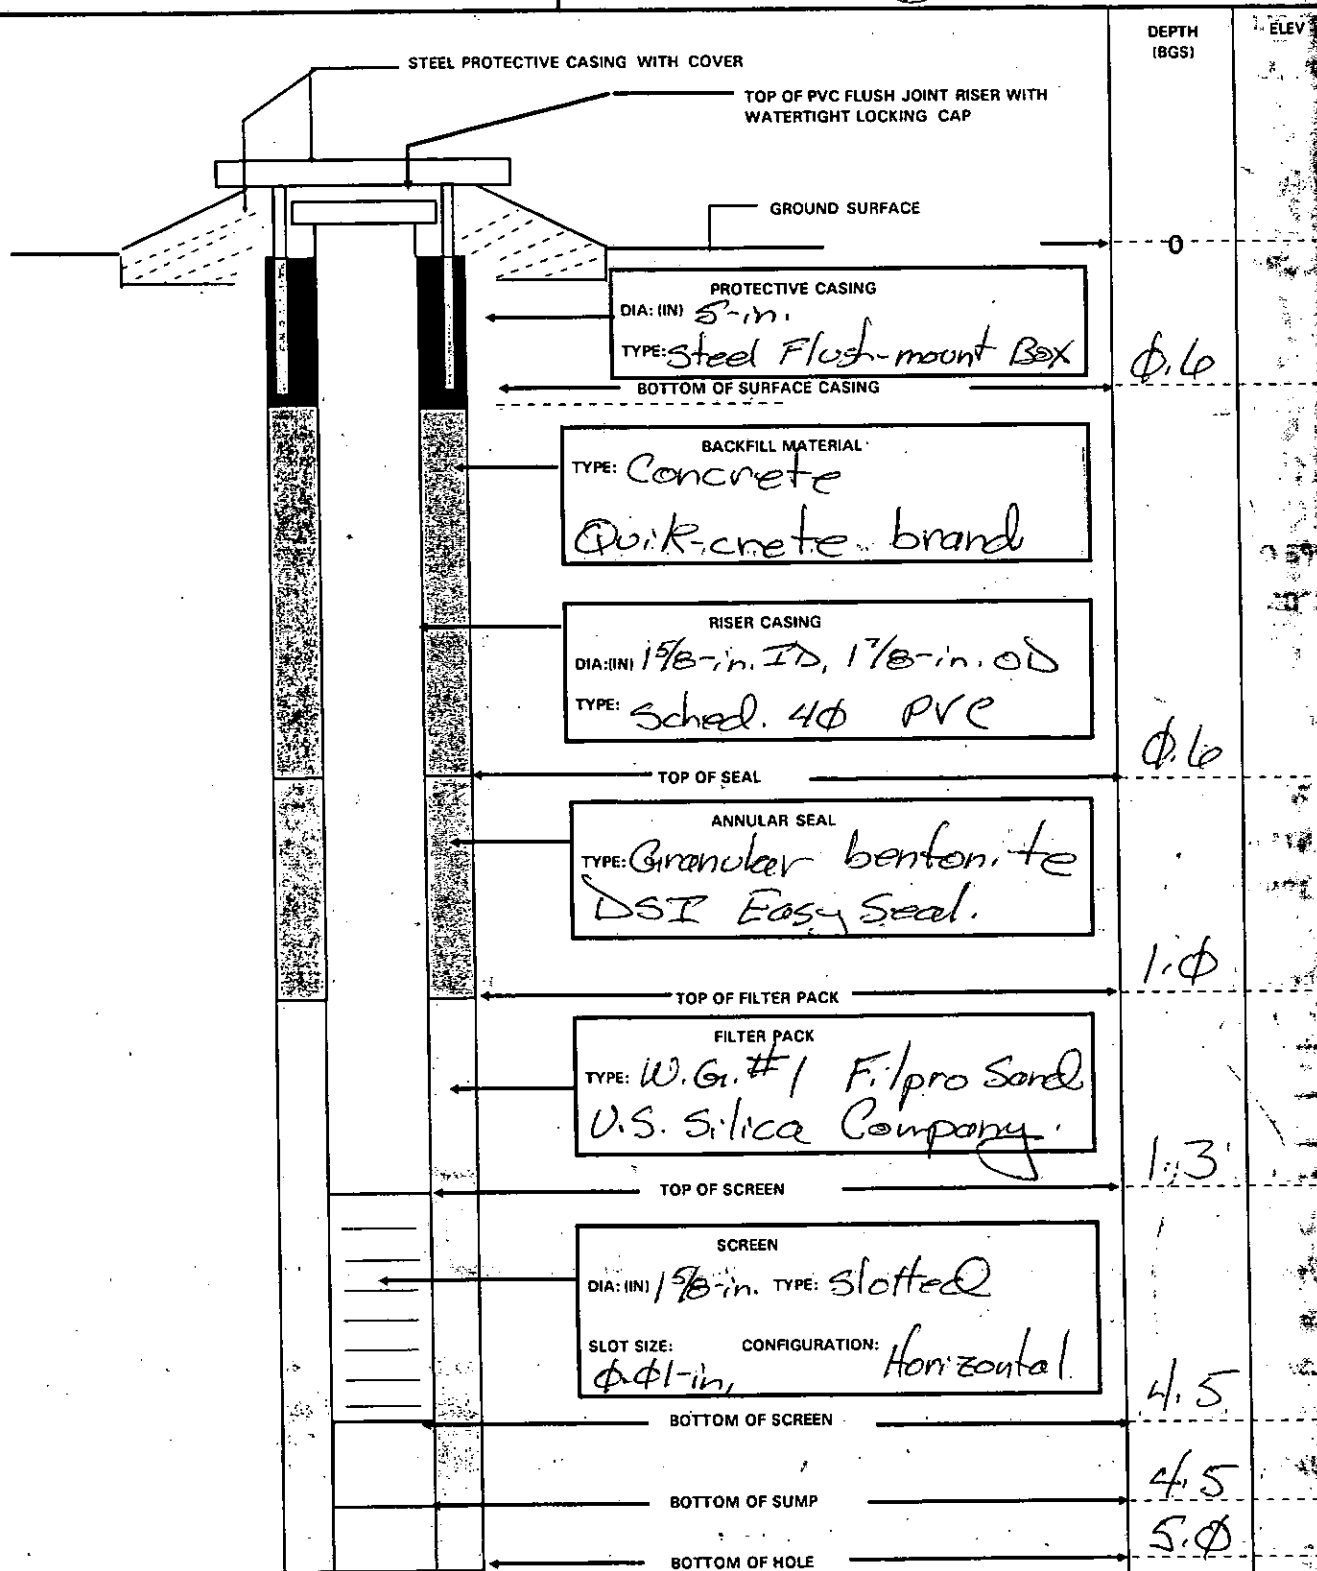 DEPTH
(BGS)
ELEV
STEEL PROTECTIVE CASING WITH COVER
TOP OF PVC FLUSH JOINT RISER WITH
WATERTIGHT LOCKING CAP
GROUND SURFACE
0
PROTECTIVE CASING
DIA: (IN) 5-in.
TYPE: Steel Flush-mount Box
Ø.6
BOTTOM OF SURFACE CASING
BACKFILL MATERIAL
TYPE: Concrete
Quik-crete brand
RISER CASING
DIA:(IN) 1 5/8-in. ID, 1 7/8-in. OD
TYPE: Sched. 4Ø PVC
Ø.6
TOP OF SEAL
ANNULAR SEAL
TYPE: Granular bentonite
DSI Easy Seal.
1.Ø
TOP OF FILTER PACK
FILTER PACK
TYPE: W.G. #1 Filpro Sand
U.S. Silica Company.
1.3
TOP OF SCREEN
SCREEN
DIA: (IN) 1 5/8-in. TYPE: Slotted
SLOT SIZE: CONFIGURATION: Horizontal
Ø.Ø1-in,
4.5
BOTTOM OF SCREEN
4.5
BOTTOM OF SUMP
5.Ø
BOTTOM OF HOLE